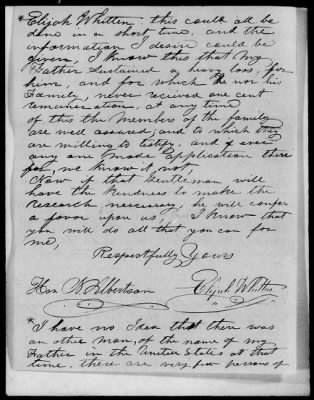 *Elijah Whitten. this could all be
done in a short time, and the
information I desire could be
given, I know this that my
Father Sustained a heavy loss, for
him, and for which he nor his
Family, never received one cent
remuneration, at any time
of this the members of the family
are well assured, and to which they
are willing to testify, and if ever
any one made application there
for, we know it not,
Now if that Gentleman will
have the kindness to make the
research necessary, he will confer
a favor upon us, I know that
you will do all that you can for
me,
Respectfully Yours
Hon N. Albertson Elijah Whitten
*I have no Idea that there was
an other man, of the name of my
Father in the United States at that
time, there are very few persons of